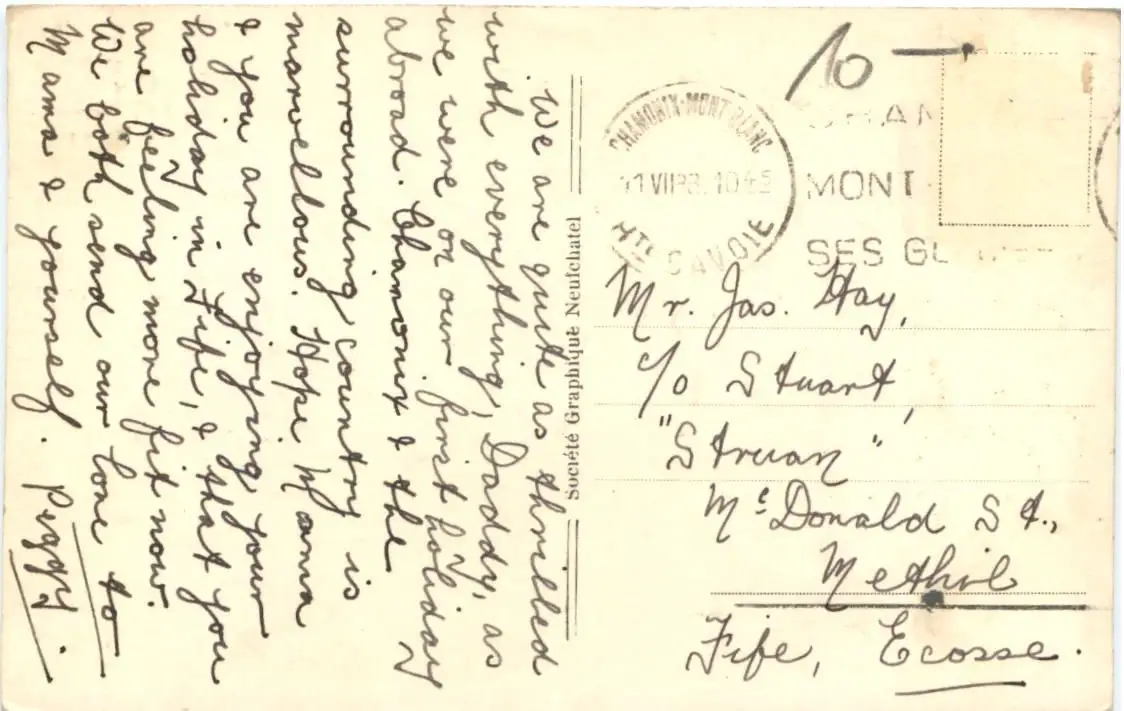 We are quite as thrilled
with everything, Daddy, as
we were on our first holiday
abroad. Chamonix & the
surrounding country is
marvellous. Hope Mama
& you are enjoying your
holiday in Fife, & that you
are feeling more fit now.
We both send our love to
Mama & yourself. Peggy.
Société Graphique Neufchatel
10
CHAMONIX-MONT BLANC
11 VII 10 45
HTE SAVOIE
MONT
SES
Mr. Jas. Hay,
c/o Stuart,
"Struan"
McDonald St.,
Methil
Fife, Ecosse.